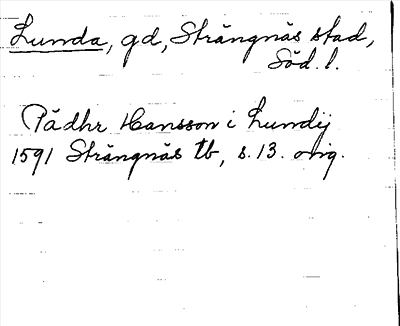 Lunda, gd, Strängnäs stad,
Söd. l.
Pådhr Hansson i Lundij
1591 Strängnäs tb, s. 13. orig.